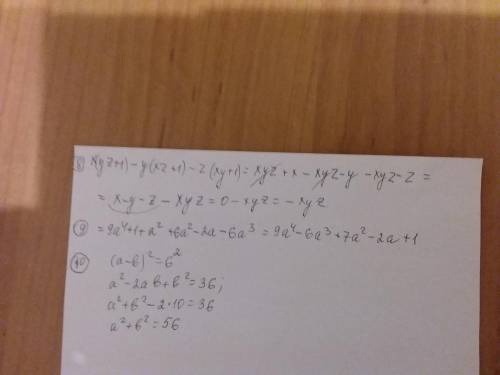 8) x(yz+1)-y(xz+1)-z(xy+1)=xyz+x-xyz-y-xyz-z=
=x-y-z-xyz=0-xyz=-xyz
9) =9a⁴+1+a²+6a²-2a-6a³=9a⁴-6a³+7a²-2a+1
10) (a-b)²=6²
a²-2ab+b²=36;
a²+b²-2·10=36
a²+b²=56